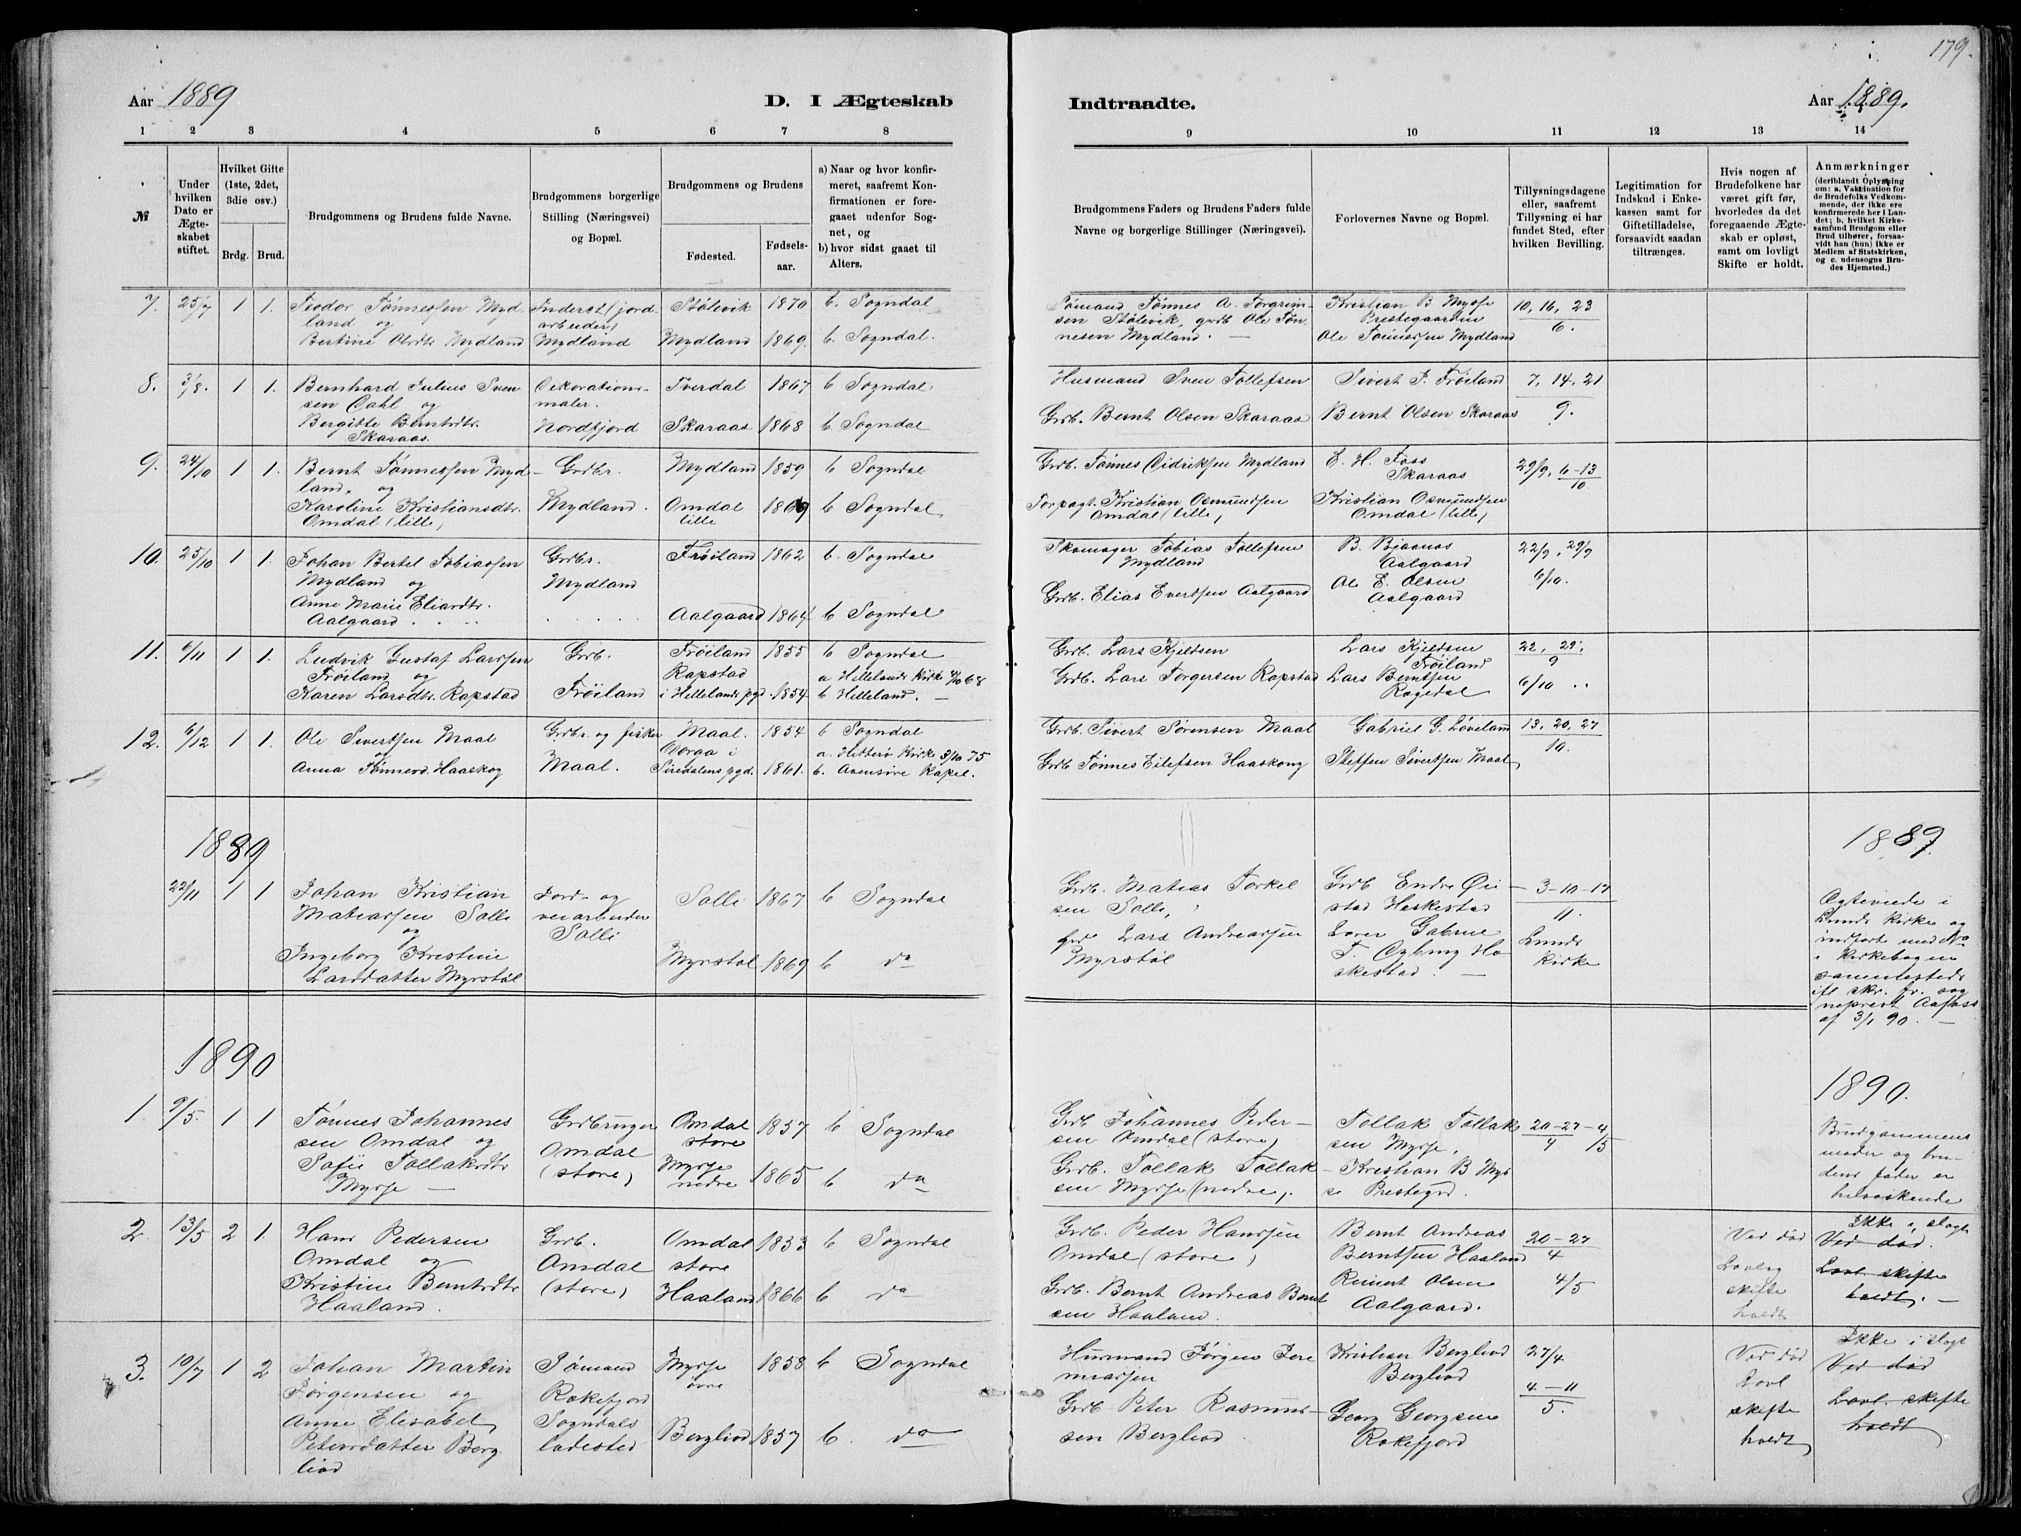 179.
Aar 1889
D. I Ægteskab
Indtraadte.
Aar 1889.
1 2 3 4 5 6 7 8
9 10 11 12 13 14
№
Under hvilken Dato er Ægteskabet stiftet.
Hvilket Gifte (1ste, 2det, 3die osv.)
Brdg. Brud.
Brudgommens og Brudens fulde Navne.
Brudgommens borgerlige Stilling (Næringsvei) og Bopæl.
Brudgommens og Brudens
Fødested.
Fødselsaar.
a) Naar og hvor konfirmeret, saafremt Konfirmationen er foregaaet udenfor Sognet, og
b) hvor sidst gaaet til Alters.
Brudgommens Faders og Brudens Faders fulde Navne og borgerlige Stillinger (Næringsvei).
Forlovernes Navne og Bopæl.
Tillysningsdagene eller, saafremt Tillysning ei har fundet Sted, efter hvilken Bevilling.
Legitimation for Indskud i Enkekassen samt for Giftetilladelse, forsaavidt saadan tiltrænges.
Hvis nogen af Brudefolkene har været gift før, hvorledes da det foregaaende Ægteskab er opløst, samt om lovligt Skifte er holdt.
Anmærkninger
(deriblandt Oplysning om: a. Vaksination for Brudefolks Vedkommende, der ikke ere konfirmerede her i Landet; b. hvilket Kirkesamfund Brudgom eller Brud tilhører, forsaavidt han (hun) ikke er Medlem af Statskirken, og c. udensogns Brudes Hjemsted.)
7. 25/7 1 1. Teodor Tønnessen Mydland og
Bertine Olsdtr Mydland
Inderst (jordarbeider)
Mydland
Stølevik 1870 b. Sogndal
Mydland 1869. b. Sogndal.
Sømand Tønnes A. Torgrimsen Stølevik, grdb Ole Tønnesen Mydland.
Kristian B Mysse
Prestegaarden
Ole Tønnessen Mydland
10, 16, 23
6.
8. 3/8. 1 1. Bernhard Julius Svensen Dahl og
Bergitte Berntdtr. Skaraas.
Dekorationsmaler.
Nordfjord
Tverdal 1867 b Sogndal.
Skaraas 1868 b Sogndal
Husmand Sven Tollefsen
Grb. Bernt Olsen Skaraas
Sivert T. Frøiland
Bernt Olsen Skaraas
7, 14, 21
9.
9. 24/10 1 1. Bernt Tønnessen Mydland, og
Karoline Kristiansdtr.
Omdal (lille)
Grdbr.
Mydland.
Mydland 1859 b Sogndal
Omdal lille 1869 b Sogndal
Grdb. Tønnes Didriksen Mydland
Forpagt. Kristian Osmundsen
Omdal (lille)
E. H. Foss
Skaraas
Kristian Osmundsen
Omdal (lille)
29/9, 6-13
10.
10. 25/10 1 1. Johan Bertel Tobiassen
Mydland og
Anne Marie Eliasdtr.
Aalgaard
Grdbr.
Mydland
Frøiland 1862 b. Sogndal
Aalgaard 1864 b Sogndal
Skomager Tobias Tollefsen
Mydland
Grdb. Elias Evertsen Aalgaard
B. Bjaanæs
Aalgaard
Ole E. Olsen
Aalgaard
22/9, 29/9
6/10.
11. 6/11 1 1. Ludvik Gustaf Larssen
Frøiland og
Karen Larsdtr. Rapstad
Grdb.
Frøiland
Frøiland 1855 b Sogndal
Rapstad a Hellelands Kirke 4/10 68
i Hellelands pgd. 1854. b Helleland.
Grdb. Lars Kjeldsen
Grdb. Lars Torgersen Rapstad
Lars Kjeldsen
Frøiland
Lars Berntsen
Ragedal
22, 29,
9
6/10
12. 6/12 1 1. Ole Sivertsen Maal
og
Anna Tønnesd. Haaskog
Grdbr og fisker
Maal.
Maal. 1854 b Sogndal
a. Hitterø Kirke 3/10 75
Siredalens pgd. 1861. b. Aaensire Kapel.
Grdb Sivert Sørensen Maal
Grdb Tønnes Eilefsen Haaskong
Gabriel G. Løveland
Steffen Sivertsen Maal,
13, 20, 27
10.
1889
1889.
22/11 1 1 Johan Kristian
Matiassen Solli
og
Ingeborg Kristine
Larsdatter Myrstøl
Jord- og
veiarbeider
Solli
Solli 1867 b Sogndal
Myrstøl 1869 b do
Grb. Matias Torkelsen Solli,
Lars Andreassen
Myrstøl
Grdb Endre Øistad Heskestad
3-10-17
11.
Lunds
Kirke
Ægteviede i
Lunds Kirke og
indført med No
i Kirkebogen
sammesteds
ifl skr. fr. sogneprest Aafoss
af 3/1 90.
1890
1890.
1. 9/5. 1 1 Tønnes Johannessen Omdal og
Sofie Tollaksdtr
Mysse
Grdbruger
Omdal
(store)
Omdal store 1857 b Sogndal
Mysse nedre 1865 b do
Grdb Johannes Pedersen Omdal (store)
Grdb. Tollak Tollaksen Mysse (nedre).
Tollak Tollaksen Mysse,
Kristian B Mysse Prestegrd.
20-27-4
4 /5
Brudgommens
moder og brudens fader er
helsøskende
2 13/5 2 1. Hans Pedersen
Omdal og
Kristine Berntsdtr
Haaland.
Grdb.
Omdal
(store)
Omdal store 1833 b Sogndal
Haaland 1866 b do
Grdb. Peder Hanssen
Omdal (store)
Grdb. Bernt Andreas Berntsen Haaland.
Bernt Andreas
Berntsen Haaland
Reinert Olsen
Aalgaard.
20-27
4
4/5
Ved død
Lovlig
skifte
holdt
Ikke i slægt
Ved død.
Lovl. skifte
holdt.
3. 10/7 1 2 Johan Martin
Jørgensen og
Anne Elisabet
Petersdatter Bergliod
Sømand
Rekefjord
Sogndals
ladested
Mysse øvre 1858 b Sogndal
Bergliod 1857 b. do
Husmand Jørgen Jeremiassen
Grdb Peter Rasmussen Bergliod
Kristian Bergliod
Bergliod
Georg Georgsen
Rekefjord
27/4
4-11
5.
Ved død
Lovl
skifte
holdt
Ikke i slægt
Ved død
Lovl. skifte
holdt